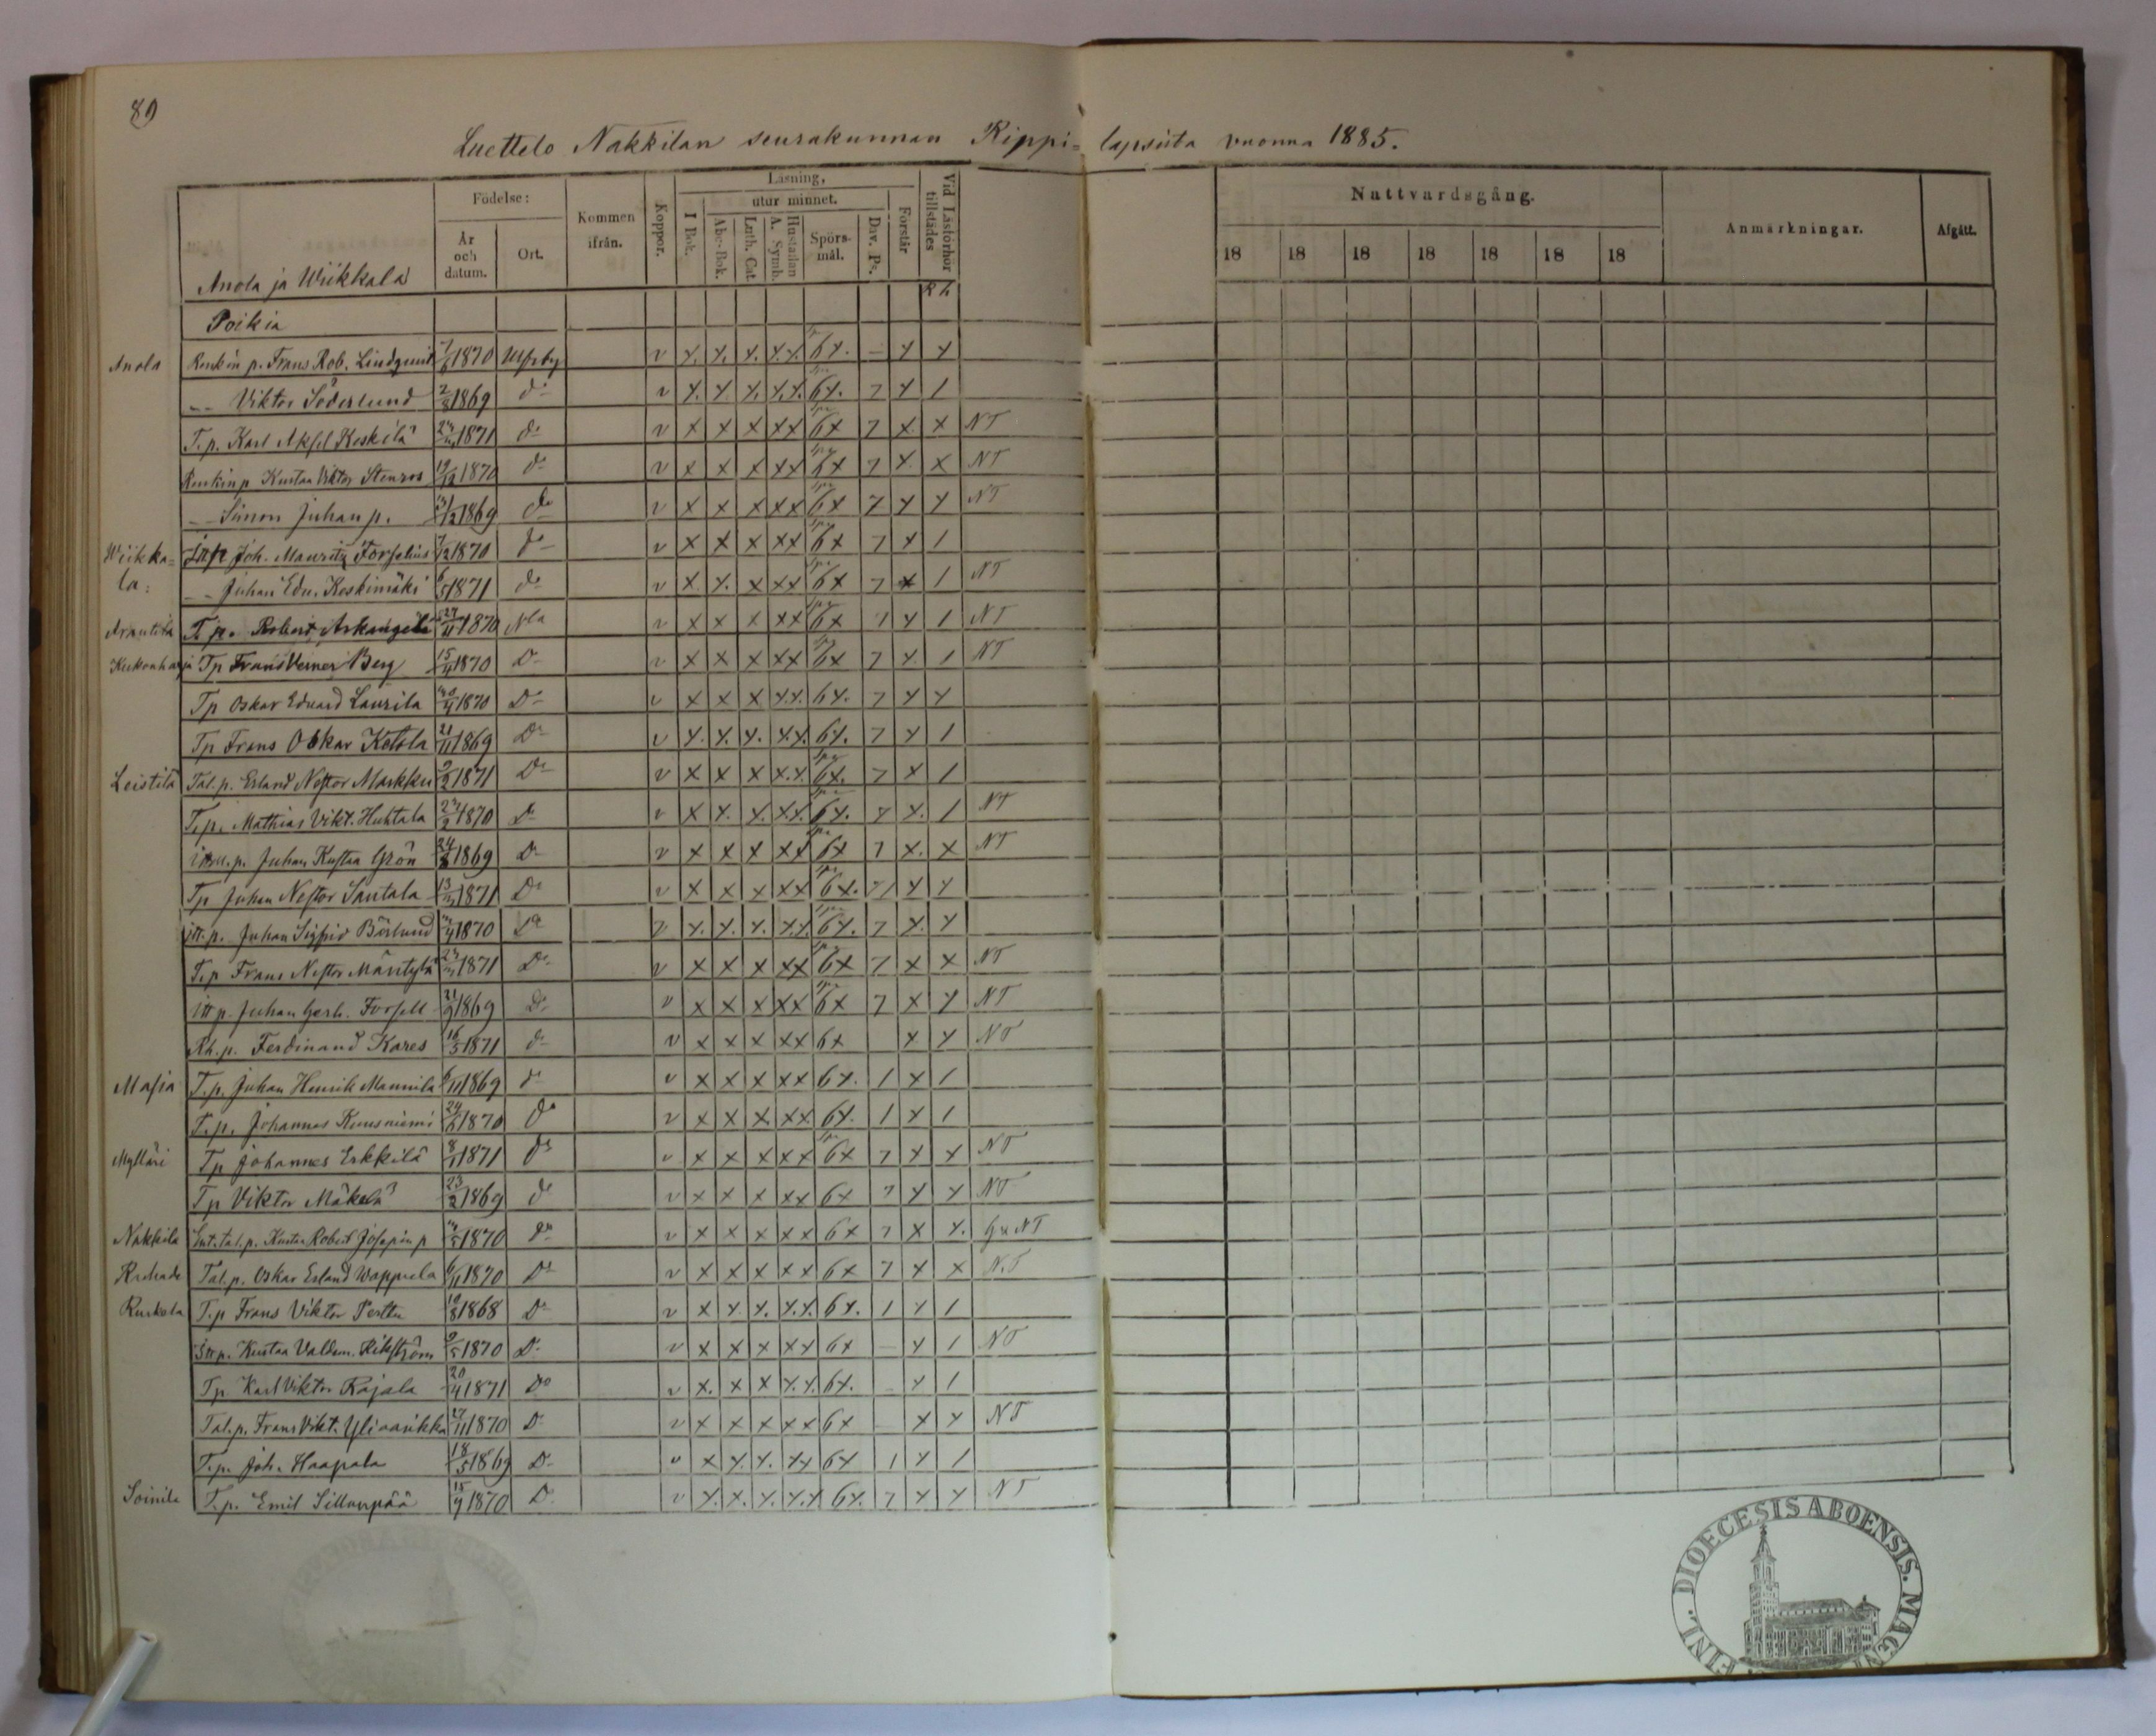 89
Luettelo Nakkilan seurakunnan Rippi= lapsista vuonna 1885.
Födelse: Kommen ifrån. Koppor. Läsning, Vid Läsförhör tillstädes Nattvardsgång. Anmärkningar. Afgått.
utur minnet.
År och datum. Ort. I Bok. Abc-Bok. Luth. Cat. A. Symb. Hustaflan Spörsmål. Dav. Ps. Förstår 18 18 18 18 18 18 18
Anola ja Wiikkala
Rh
Poikia
Anola Renkin p. Frans Rob. Lindqvist 1870 Ulfsby v x. x. x. x.x. 6x. – x x
-- Viktor Söderlund 2/8 1869 do v x. x x. x.x. 6x. 7 x 1
T. p. Karl Aksel Keskilä 1871 do v x x x xx 6x 7 x x NT
Renkin p Kustaa Viktor Stenros 19/12 1870 do v x x x xx 6x 7 x. x NT
-- Simon Juhan p. 31/12 1869 do v x x x xx 6x 7 x x NT
Wiikka= Joh. Mauritz Forselius 1870 do v x x x xx 6x 7 x 1
la: -- Juhan Edv. Koskimäki 1871 do v x x. x xx 6x 7 x 1 NT
Arantila T. p. Robert Arkangeli 1870 Nla v x x x xx 6x 7 x 1 NT
Kukonharja Tp Frans Verner Berg 15/11 1870 Do v x x x xx 6x 7 x. 1 NT
Tp Oskar Eduard Laurila 1870 Do v x x x x.x. 6x. 7 x x
Tp Frans Oskar Ketola 21/11 1869 Do v x. x. x. x.x. 6x. 7 x 1
Leistilä Tal. p. Erland Nestor Markku 9/2 1871 Do v x x x x.x. 6x. 7 x 1
T. p. Mathias Vikt. Huhtala 1870 Do v x x. x. x.x. 6x. 7 x. 1 NT
Itsll. p. Juhan Kustaa Grön 24/8 1869 Do v x x x xx 6x 7 x. x NT
Tp Juhan Nestor Santala 13/3 1871 Do v x x x xx 6x. 7 x x
Itt. p. Juhan Sigfrid Börlund 1870 Do v x. x. x. x.x. 6x. 7 x. x
T. p Frans Nestor Mäntylä 1871 Do v x x x xx 6x 7 x x NT
Itt p. Juhan Gerh. Forsell 21/9 1869 Do v x x x xx 6x 7 x x NT
Rh. p. Ferdinand Kares 16/5 1871 do v x x x xx 6x x x NT
Masia T. p. Juhan Henrik Mannila 6/11 1869 do v x x x xx 6x. 1 x 1
T. p. Johannes Kuusniemi 24/6 1870 do v x x x xx 6x. 1 x 1
Mylläri Tp Johannes Erkkilä 8/1 1871 do v x x x xx 6x 7 x x NT
Tp Viktor Mäkelä 23/2 1869 do v x x x xx 6x 7 x x NT
Nakkila Ent. tal. p. Kustaa Robert Josepin p 1870 do v x x x xx 6x 7 x x. NT
Ruhade Tal. p. Oskar Erland Wappula 6/11 1870 Do v x x x xx 6x 7 x x N.T
Ruskela T. p Frans Viktor Perttu 10/8 1868 Do v x x. x. x.x. 6x. 1 x 1
Itt p. Kustaa Valdem. Rikström 9/5 1870 Do v x x x xx 6x – x 1 NT
Tp Karl Viktor Rajala 20/4 1871 Do v x. x x x.x. 6x. – x 1
Tal. p. Frans Vikt. Yliaarikka 27/11 1870 Do v x x x xx 6x x x NT
T. p. Joh. Haapala 18/5 1869 Do v x x x. xx 6x 1 x 1
Soinila T. p. Emil Sillanpää 15/9 1870 Do v x. x. x. x.x 6x. 7 x x NT
DIOECESIS ABOENSIS. MAGNI FINL.